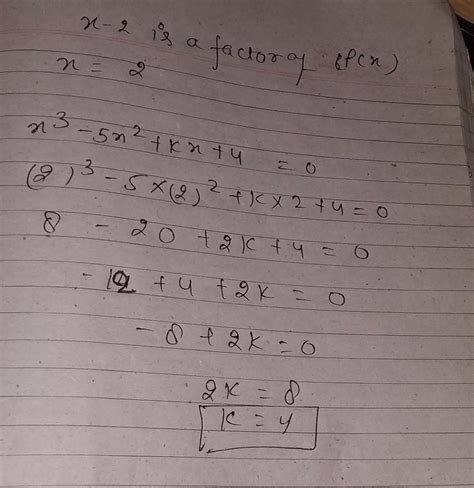 x-2 is a factor of P(x)
x = 2
x³ - 5x² + kx + 4 = 0
(2)³ - 5×(2)² + k×2 + 4 = 0
8 - 20 + 2k + 4 = 0
- 12 + 4 + 2k = 0
- 8 + 2k = 0
2k = 8
k = 4